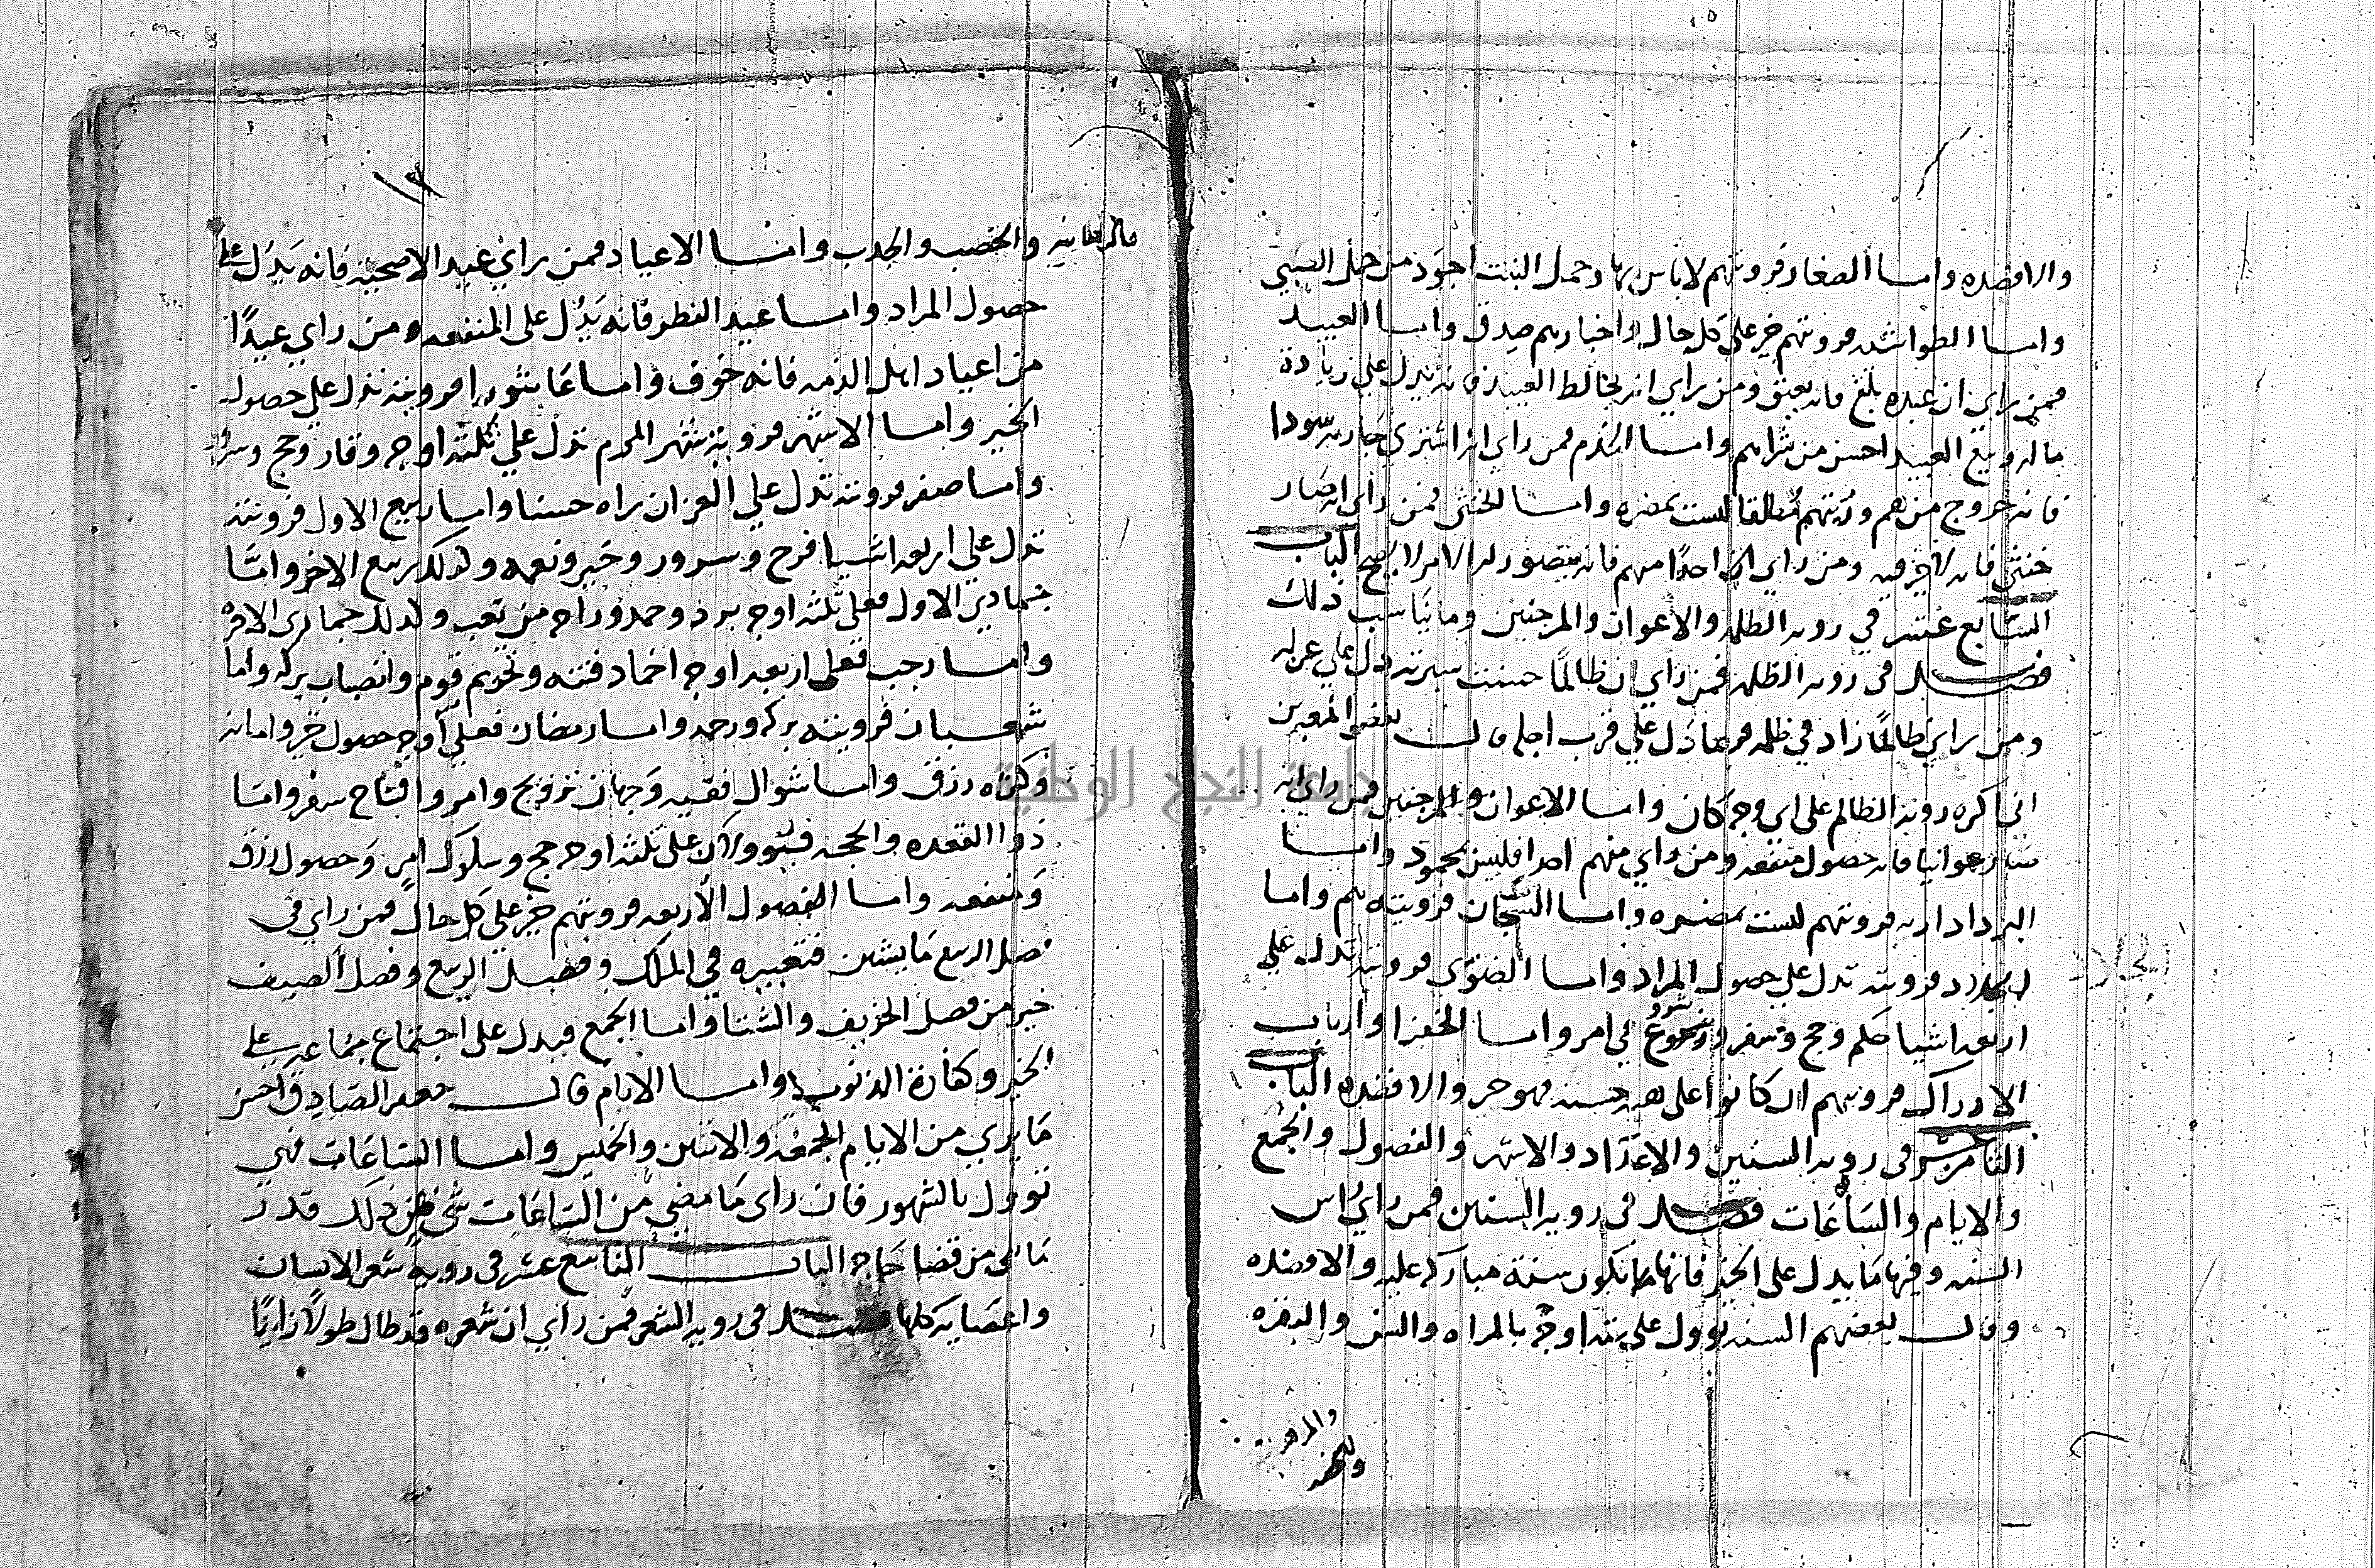 والافضده واما الصغار فروتهم لا باس بها وحمل البنت اجود من حمل الصبي
واما الطواشيه فروتهم خير على كل حال واخبارهم صدق واما العبيد
فمن راي ان عبده بلغ فانه يعتق ومن راي انه يخالط العبيد فانه يدل علي زيادة
ماله وبيع العبيد احسن من شراهم واما الخدم فمن راي انه اشتري جاريه سودا
فانه خروج من هم ورويتهم مطلقا ليست بمضره واما الخنثى فمن راي انه صار
خنثي فانه لا خير فيه ومن راي احدا منهم فانه يتصور له الامر لا يصح الباب
السابع عشر في رويه الظلمه والاعوان والمرجفين وما يناسب ذلك
فصل في رويه الظلمه فمن راي ان ظالمًا حسنت سيرته دل علي عزله
ومن راي ظالمًا زاد في ظلمه فربما دل علي قرب اجله وقال بعض المعبرين
اني اكره رويه الظالم على اي وجه كان واما الاعوان والمرجفين فمن راي انه
صار عوانيا فانه حصول منفعه ومن راي منهم احدا فليس بمحمود واما
البرداداريه فروتهم ليست بمضره واما السجان فرويته هم واما
الجلاد فرويته تدل علي حصول المراد واما الضوي فرويته تدل علي
اربعه اشيا حكم وحج وسفر ورجوع في امر واما الخفرا وارباب
الادراك فرويتهم ان كانوا على هيه حسنه فهو خير والا فضده الباب
الثامن عشر في رويه السنين والاعياد والاشهر والفصول والجمع
والايام والساعات فصل في رويه السنين فمن راي راس
السنه وفيها ما يدل على الخير فانها تكون سنة مباركه عليه والا فضده
وقال بعضهم السنه توول علي سته اوجه بالمراه والسن والبقره
والخصب والجدب واما الاعياد فمن راي عيد الاضحيه فانه يدل علي
حصول المراد واما عيد الفطر فانه يدل على المنفعه ومن راي عيدًا
من اعياد اهل الذمه فانه خوف واما عاشورا فرويته تدل علي حصول
الخير واما الاشهر فرويه شهر المحرم تدل علي ثلثه اوجه وقار وحج وسرور
واما صفر فرويته تدل علي العز ان راه حسنا واما ربيع الاول فرويته
تدل علي اربعه اشيا فرح وسرور وخير ونعمه وكذلك ربيع الاخر واما
جمادي الاول فعلي ثلثه اوجه برد وحمد وراحه من تعب وكذلك جمادي الاخر
واما رجب فعلي اربعه اوجه اخماد فتنه وتحريم قوم وانصباب بركه واما
شعبان فرويته بركه ورحمه واما رمضان فعلي اوجه حصول خير وامانه
وكثره رزق واما شوال ففيه وجهان تزويج وامر وافتتاح سفر واما
ذوا القعده والحجه فيئولان على ثلثه اوجه حج وسلوك امر وحصول رزق
ومنفعه واما الفصول الاربعه فرويتهم خير علي كل حال فمن راي في
فصل الربيع ما يشين فتعبيره في الملك وفصل الربيع وفصل الصيف
خير من فصل الخريف والشتا واما الجمع فيدل على اجتماع جماعه علي
الخير وكفارة الذنوب واما الايام قال جعفر الصادق احسن
ما يري من الايام الجمعه والاثنين والخميس واما الساعات فهي
توول بالشهور فان راي ما مضي من الساعات شي فمن ذلك قدر
ما بقي من قضا حاجه الباب التاسع عشر في رويه شعر الانسان
واعضايه كلها فصل في رويه الشعر فمن راي ان شعره قد طال طولا زايدًا